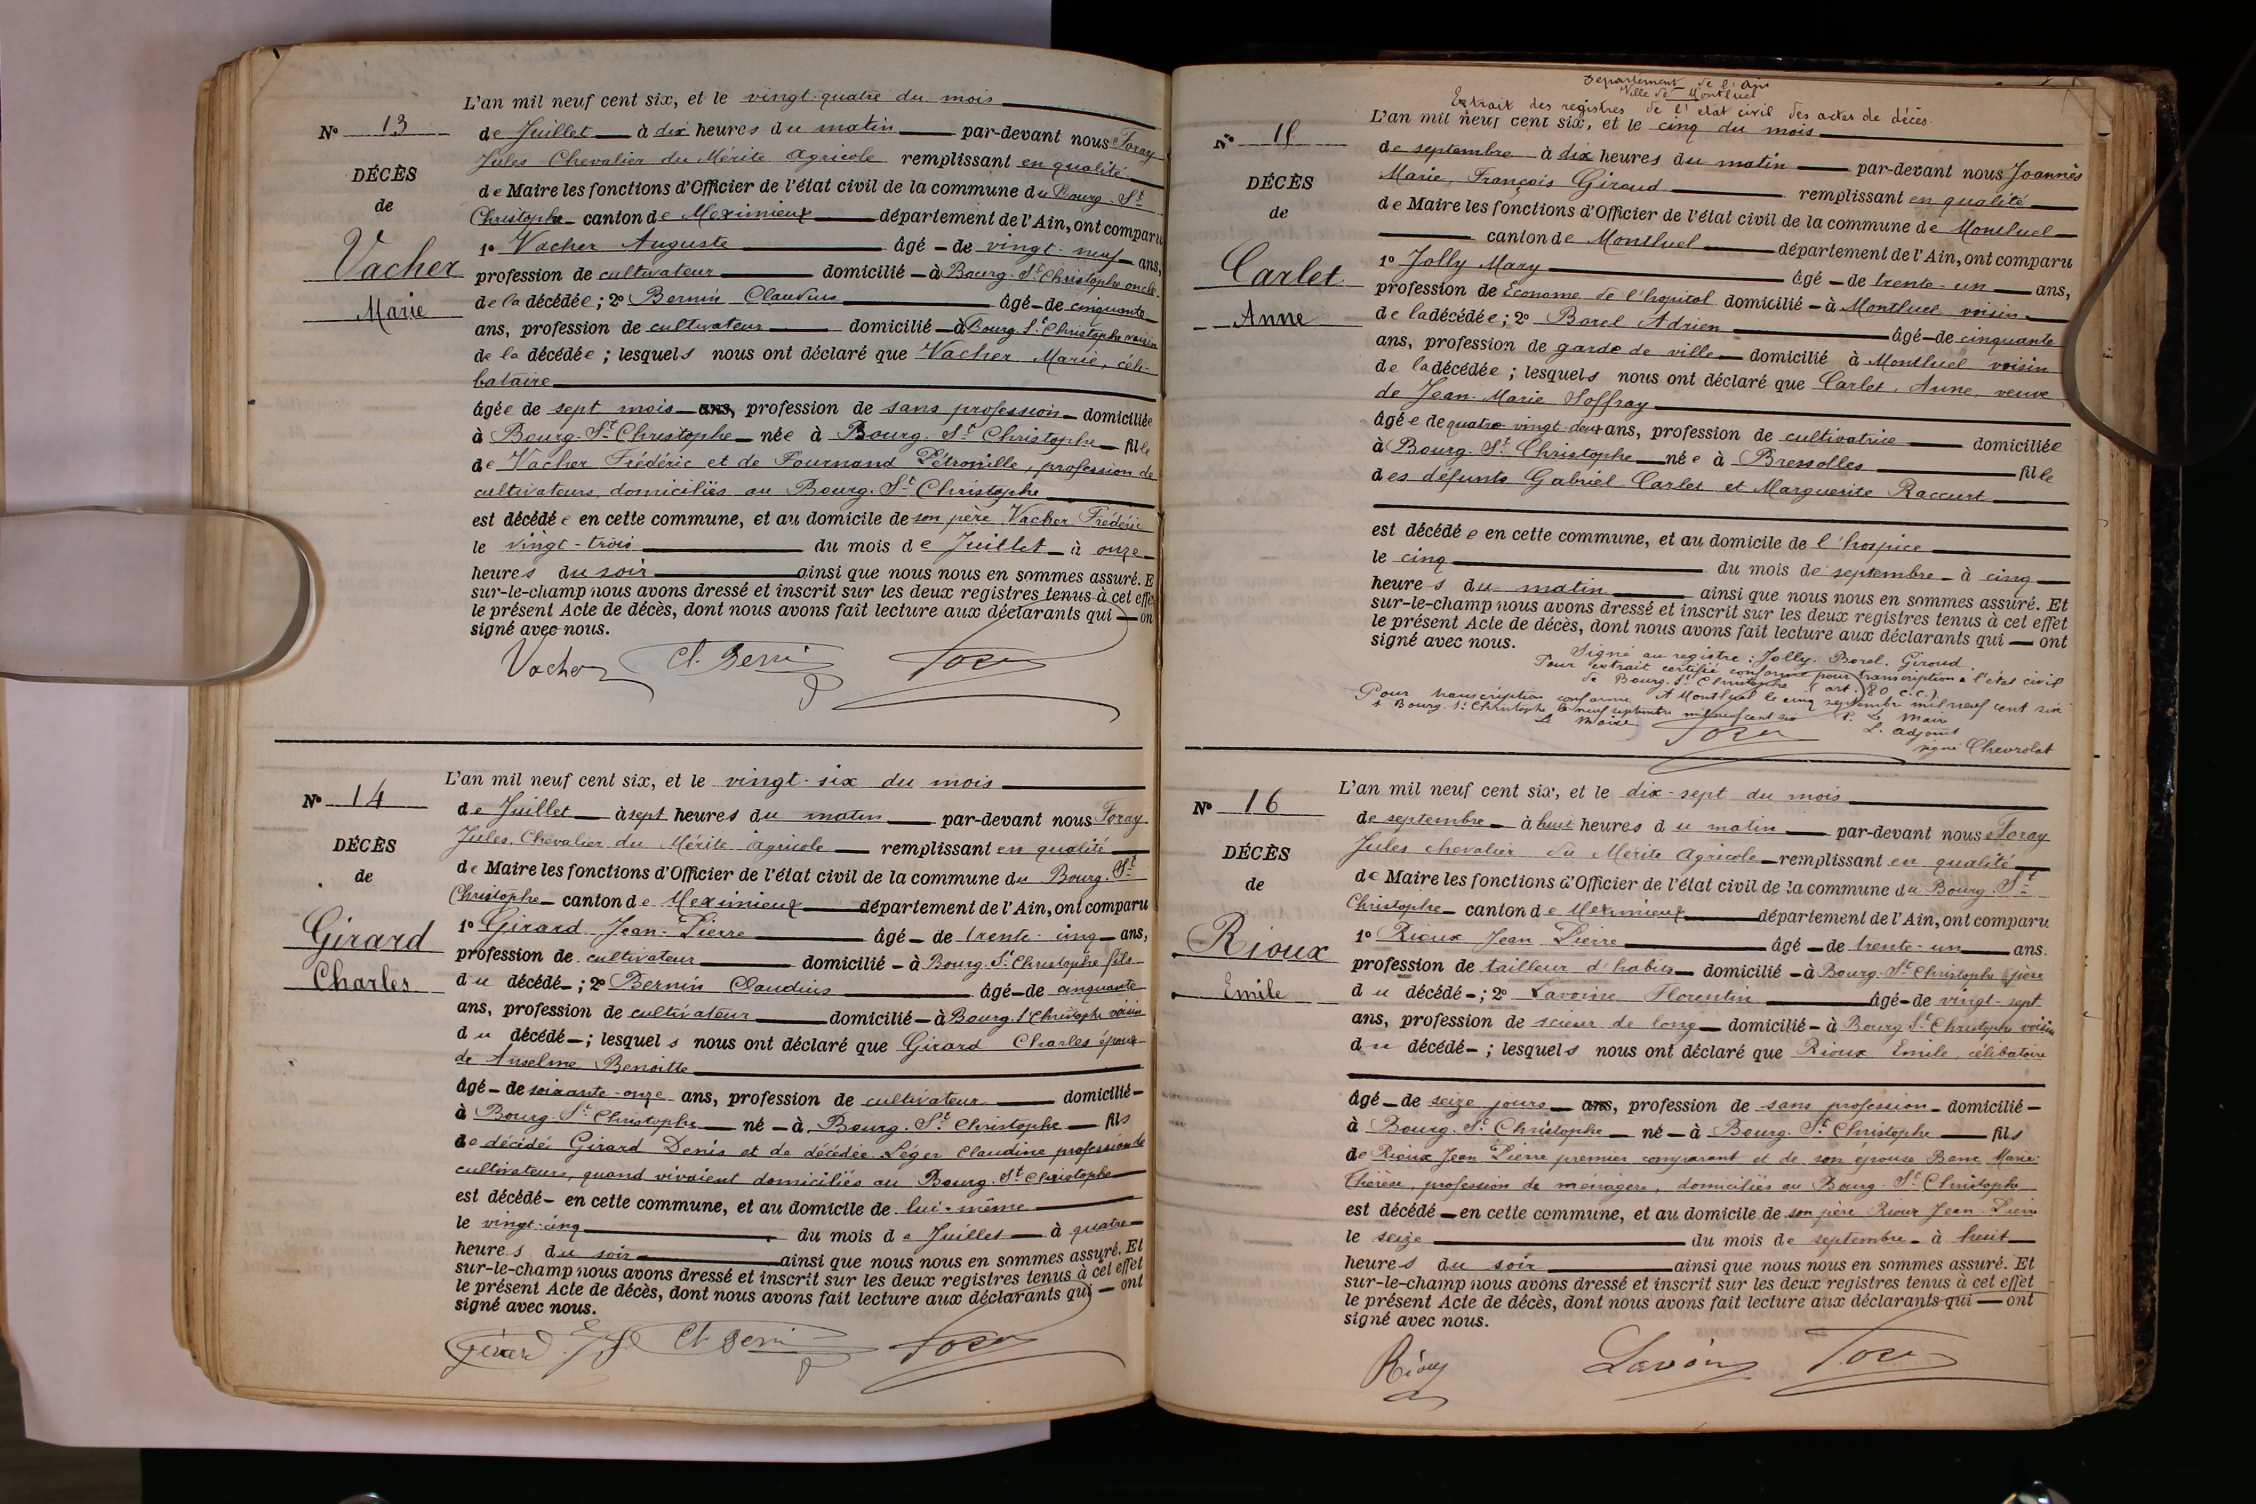 L'an mil neuf cent six, et le vingt-quatre du mois
N° 13
de Juillet à dix heures du matin par-devant nous Foray
Jules Chevalier du Mérite Agricole remplissant en qualité
DÉCÈS
de Maire les fonctions d'Officier de l'état civil de la commune du Bourg-St
de
Christophe canton de Meximieux département de l'Ain, ont comparu
1° Vacher Auguste âgé de vingt-neuf ans,
Vacher
profession de cultivateur domicilié à Bourg-St Christophe oncle
Marie
de la décédée; 2° Bernin Claudius âgé de cinquante
ans, profession de cultivateur domicilié à Bourg St Christophe voisin
de la décédée; lesquels nous ont déclaré que Vacher Marie, céli-
bataire
âgée de sept mois ans, profession de sans profession domiciliée
à Bourg-St Christophe née à Bourg-St Christophe fille
de Vacher Frédéric et de Fournand Pétronille, profession de
cultivateurs, domiciliés au Bourg-St Christophe
est décédée en cette commune, et au domicile de son père Vacher Frédéric
le vingt-trois du mois de Juillet à onze
heures du soir ainsi que nous nous en sommes assuré. E
sur-le-champ nous avons dressé et inscrit sur les deux registres tenus à cet effe
le présent Acte de décès, dont nous avons fait lecture aux déclarants qui on
signé avec nous.
Vacher Cl. Berni Foray
L'an mil neuf cent six, et le vingt-six du mois
N° 14
de Juillet à sept heures du matin par-devant nous Foray
Jules, Chevalier du Mérite Agricole remplissant en qualité
DÉCÈS
de Maire les fonctions d'Officier de l'état civil de la commune du Bourg-St
de
Christophe canton de Meximieux département de l'Ain, ont comparu
1° Girard Jean-Pierre âgé de trente-cinq ans,
Girard
profession de cultivateur domicilié à Bourg-St Christophe fils
Charles
du décédé; 2° Bernin Claudius âgé de cinquante
ans, profession de cultivateur domicilié à Bourg-St Christophe voisin
du décédé; lesquels nous ont déclaré que Girard Charles époux
de Anselme Benoitte
âgé de soixante-onze ans, profession de cultivateur domicilié
à Bourg-St Christophe né à Bourg-St Christophe fils
de décédé Girard Denis et de décédée Léger Claudine profession de
cultivateurs, quand vivaient domiciliés au Bourg-St Christophe
est décédé en cette commune, et au domicile de lui-même
le vingt-cinq du mois de Juillet à quatre
heures du soir ainsi que nous nous en sommes assuré. Et
sur-le-champ nous avons dressé et inscrit sur les deux registres tenus à cet effet
le présent Acte de décès, dont nous avons fait lecture aux déclarants qui ont
signé avec nous.
Girard J. Cl. Berni Foray
Département de l'Ain
Ville de Montluel
Extrait des registres de l'état civil des actes de décès
L'an mil neuf cent six, et le cinq du mois
N° 15
de septembre à dix heures du matin par-devant nous Joannès
Marie, François Giroud remplissant en qualité
DÉCÈS
de Maire les fonctions d'Officier de l'état civil de la commune de Montluel
de
canton de Montluel département de l'Ain, ont comparu
1° Jolly Mary âgé de trente-un ans,
Carlet
profession de Econome de l'hopital domicilié à Montluel voisin
Anne
de la décédée; 2° Borel Adrien âgé de cinquante
ans, profession de garde de ville domicilié à Montluel voisin
de la décédée; lesquels nous ont déclaré que Carlet, Anne, veuve
de Jean-Marie Soffray
âgée de quatre vingt-deux ans, profession de cultivatrice domiciliée
à Bourg St Christophe née à Bressolles fille
des défunts Gabriel Carlet et Marguerite Raccurt
est décédée en cette commune, et au domicile de l'hospice
le cinq du mois de septembre à cinq
heures du matin ainsi que nous nous en sommes assuré. Et
sur-le-champ nous avons dressé et inscrit sur les deux registres tenus à cet effet
le présent Acte de décès, dont nous avons fait lecture aux déclarants qui ont
signé avec nous.
Signé au registre: Jolly. Borel. Giroud.
Pour extrait certifié conforme pour transcription à l'état civil
de Bourg-St Christophe (art. 80 c.c.)
A Montluel le cinq septembre mil neuf cent six
Pour transcription conforme
à Bourg-St Christophe le neuf septembre mil neuf cent six
P. le Maire
Le Maire
L'adjoint
Foray
signé Chevrolat
L'an mil neuf cent six, et le dix-sept du mois
N° 16
de septembre à huit heures du matin par-devant nous Foray
Jules chevalier du Mérite Agricole remplissant en qualité
DÉCÈS
de Maire les fonctions d'Officier de l'état civil de la commune du Bourg-St
de
Christophe canton de Meximieux département de l'Ain, ont comparu
1° Rioux Jean Pierre âgé de trente-un ans.
Rioux
profession de tailleur d'habits domicilié à Bourg-St Christophe père
Emile
du décédé; 2° Lavoine Florentin âgé de vingt-sept
ans, profession de scieur de long domicilié à Bourg St Christophe voisin
du décédé; lesquels nous ont déclaré que Rioux Emile, célibataire
âgé de seize jours ans, profession de sans profession domicilié
à Bourg-St Christophe né à Bourg-St Christophe fils
de Rioux Jean Pierre premier comparant et de son épouse Banc Marie-
Thérèse, profession de ménagère, domiciliés au Bourg-St Christophe
est décédé en cette commune, et au domicile de son père Rioux Jean-Pierre
le seize du mois de septembre à huit
heures du soir ainsi que nous nous en sommes assuré. Et
sur-le-champ nous avons dressé et inscrit sur les deux registres tenus à cet effet
le présent Acte de décès, dont nous avons fait lecture aux déclarants qui ont
signé avec nous.
Rioux Lavoine Foray